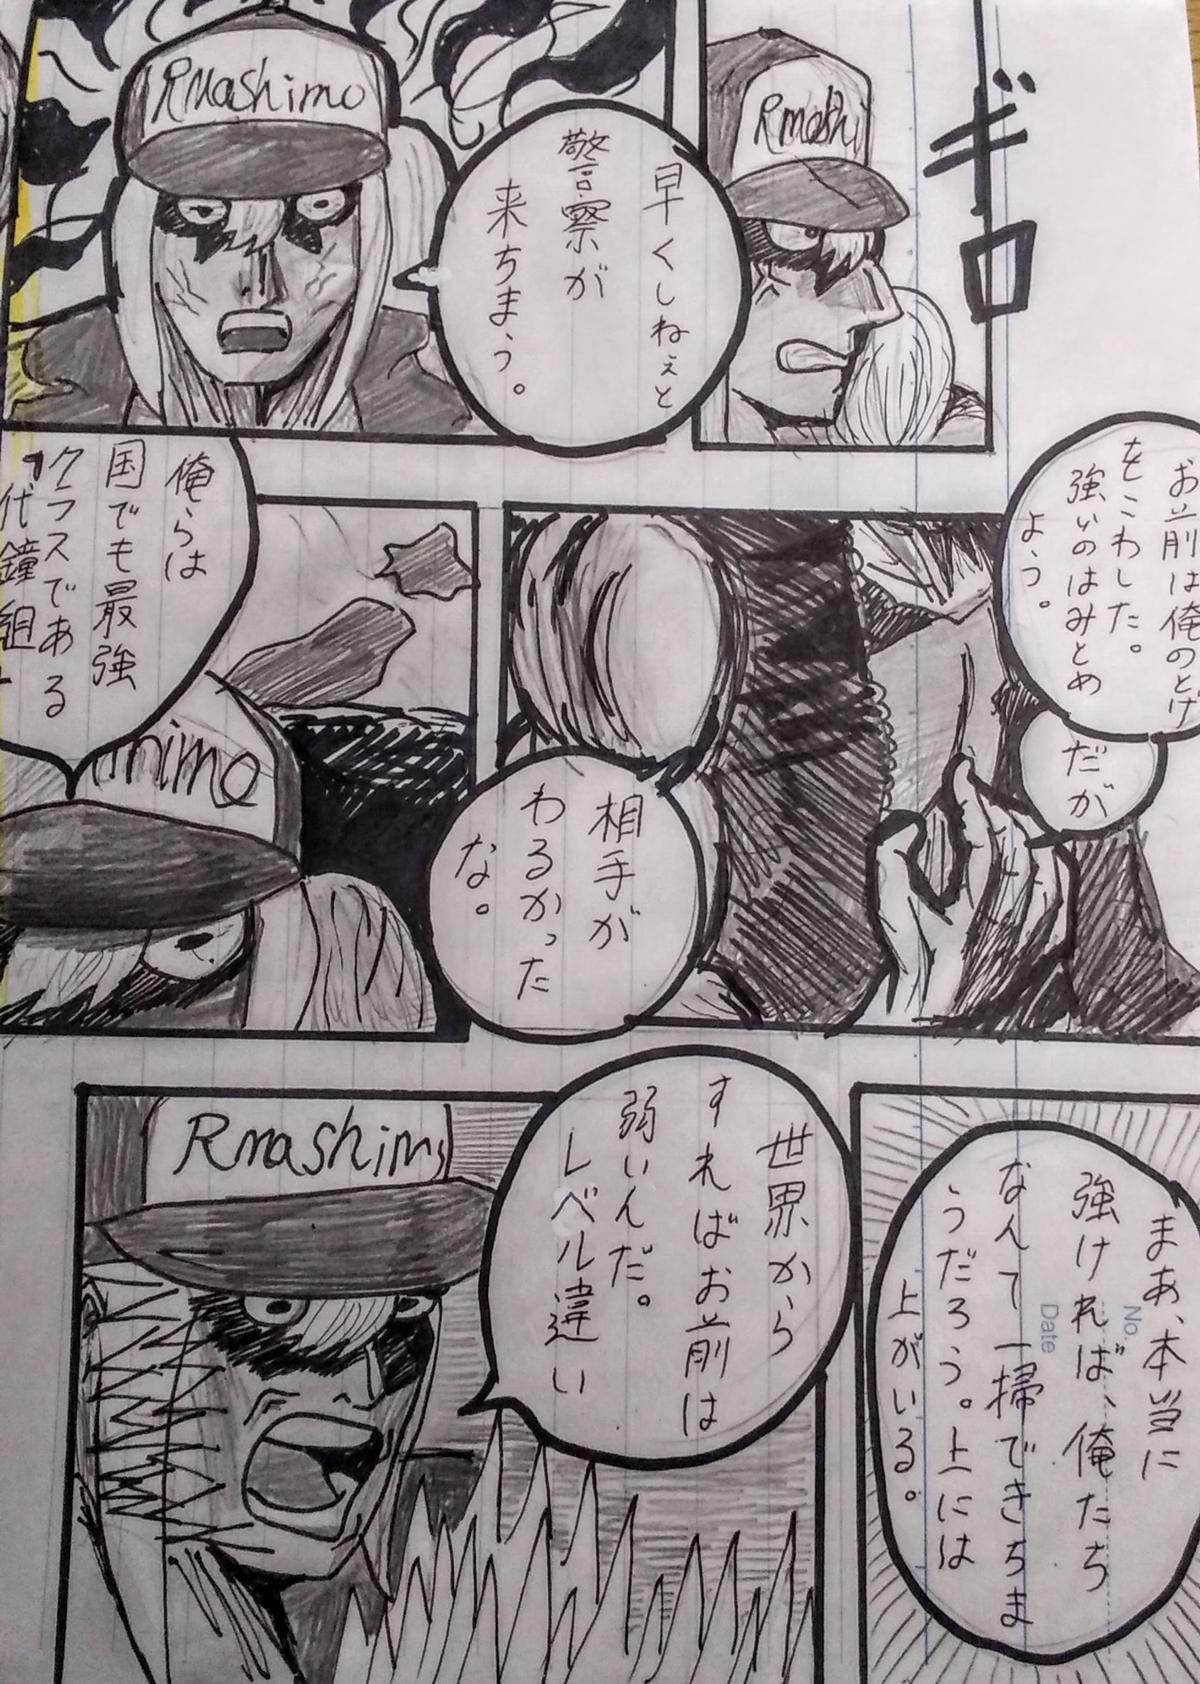 ギロ
Rmashi
早くしねぇと
警察が
来ちまう。
Rmashimo
お前は俺のとげ
をこわした。
強いのはみとめ
よう。
だが
相手が
わるかった
な。
俺らは
国でも最強
クラスである
代鐘組
himo
まあ、本当に
強ければ、俺たち
なんて一掃できちま
うだろう。上には
上がいる。
No.
Date
世界から
すればお前は
弱いんだ。
レベル違い
Rmashim